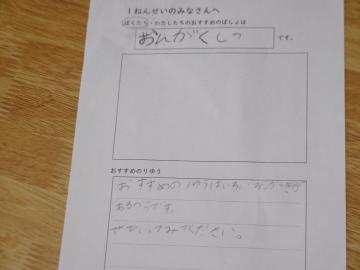 1ねんせいのみなさんへ
ぼくたち・わたしたちのおすすめのばしょは
おんがくしつ
です。
おすすめのりゆう
おすすめのりゆうはいろいろ
あるからです。
ぜひいってみてください。